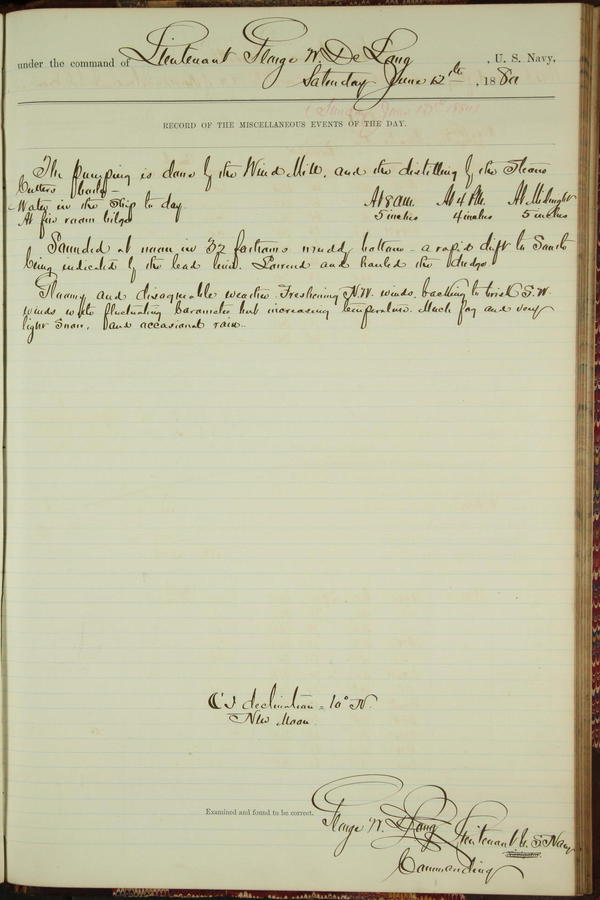 under the command of Lieutenant George W. De Long, U. S. Navy,
Saturday June 12th, 1880
RECORD OF THE MISCELLANEOUS EVENTS OF THE DAY.
The pumping is done by the Wind Mill, and the distilling by the Steam
Cutters boiler –
Water in the Ship to day At 8 AM. At 4 P.M. At Midnight
At fire room bilge 5 inches 4 inches 5 inches
Sounded at noon in 32 fathoms muddy bottom – a rapid drift to South
being indicated by the lead line. Lowered and hauled the dredge
Gloomy and disagreeable weather. Freshening N.W. winds, backing to brisk S.W.
winds with fluctuating barometer but increasing temperature. Much fog and very
light snow, and occasional rain.
☾'s declination = 10° N.
New Moon.
Examined and found to be correct.
George W. De Long Lieutenant U. S. Navy
Commanding